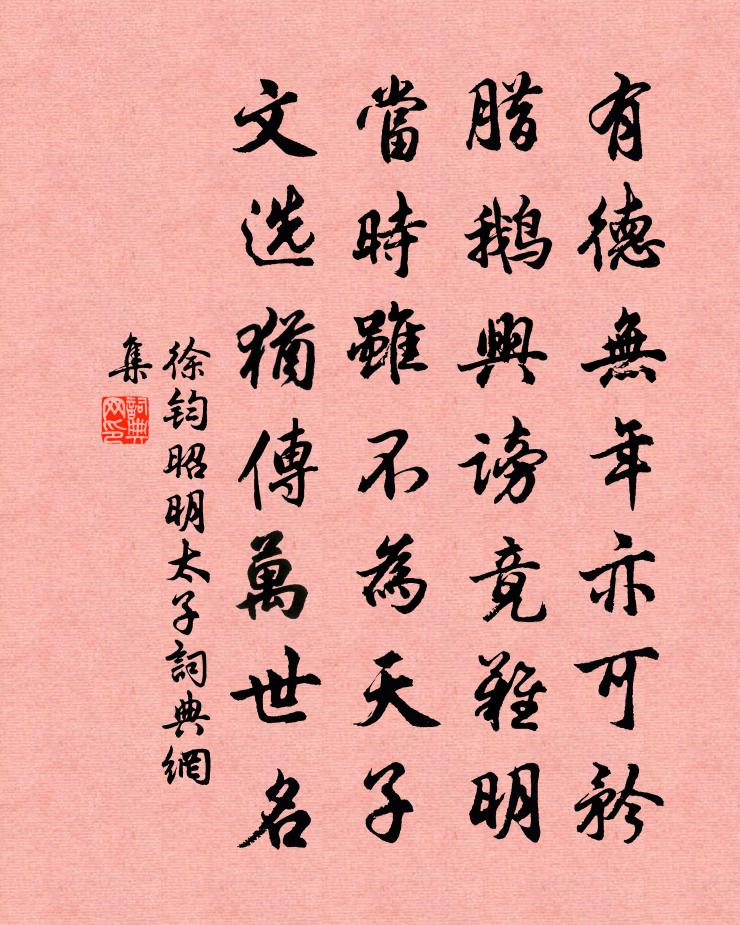 有德無年亦可矜
腊鹅興謗竟難明
當時雖不為天子
文选猶傳萬世名
徐鈞昭明太子詞典網
集
詞典
网印